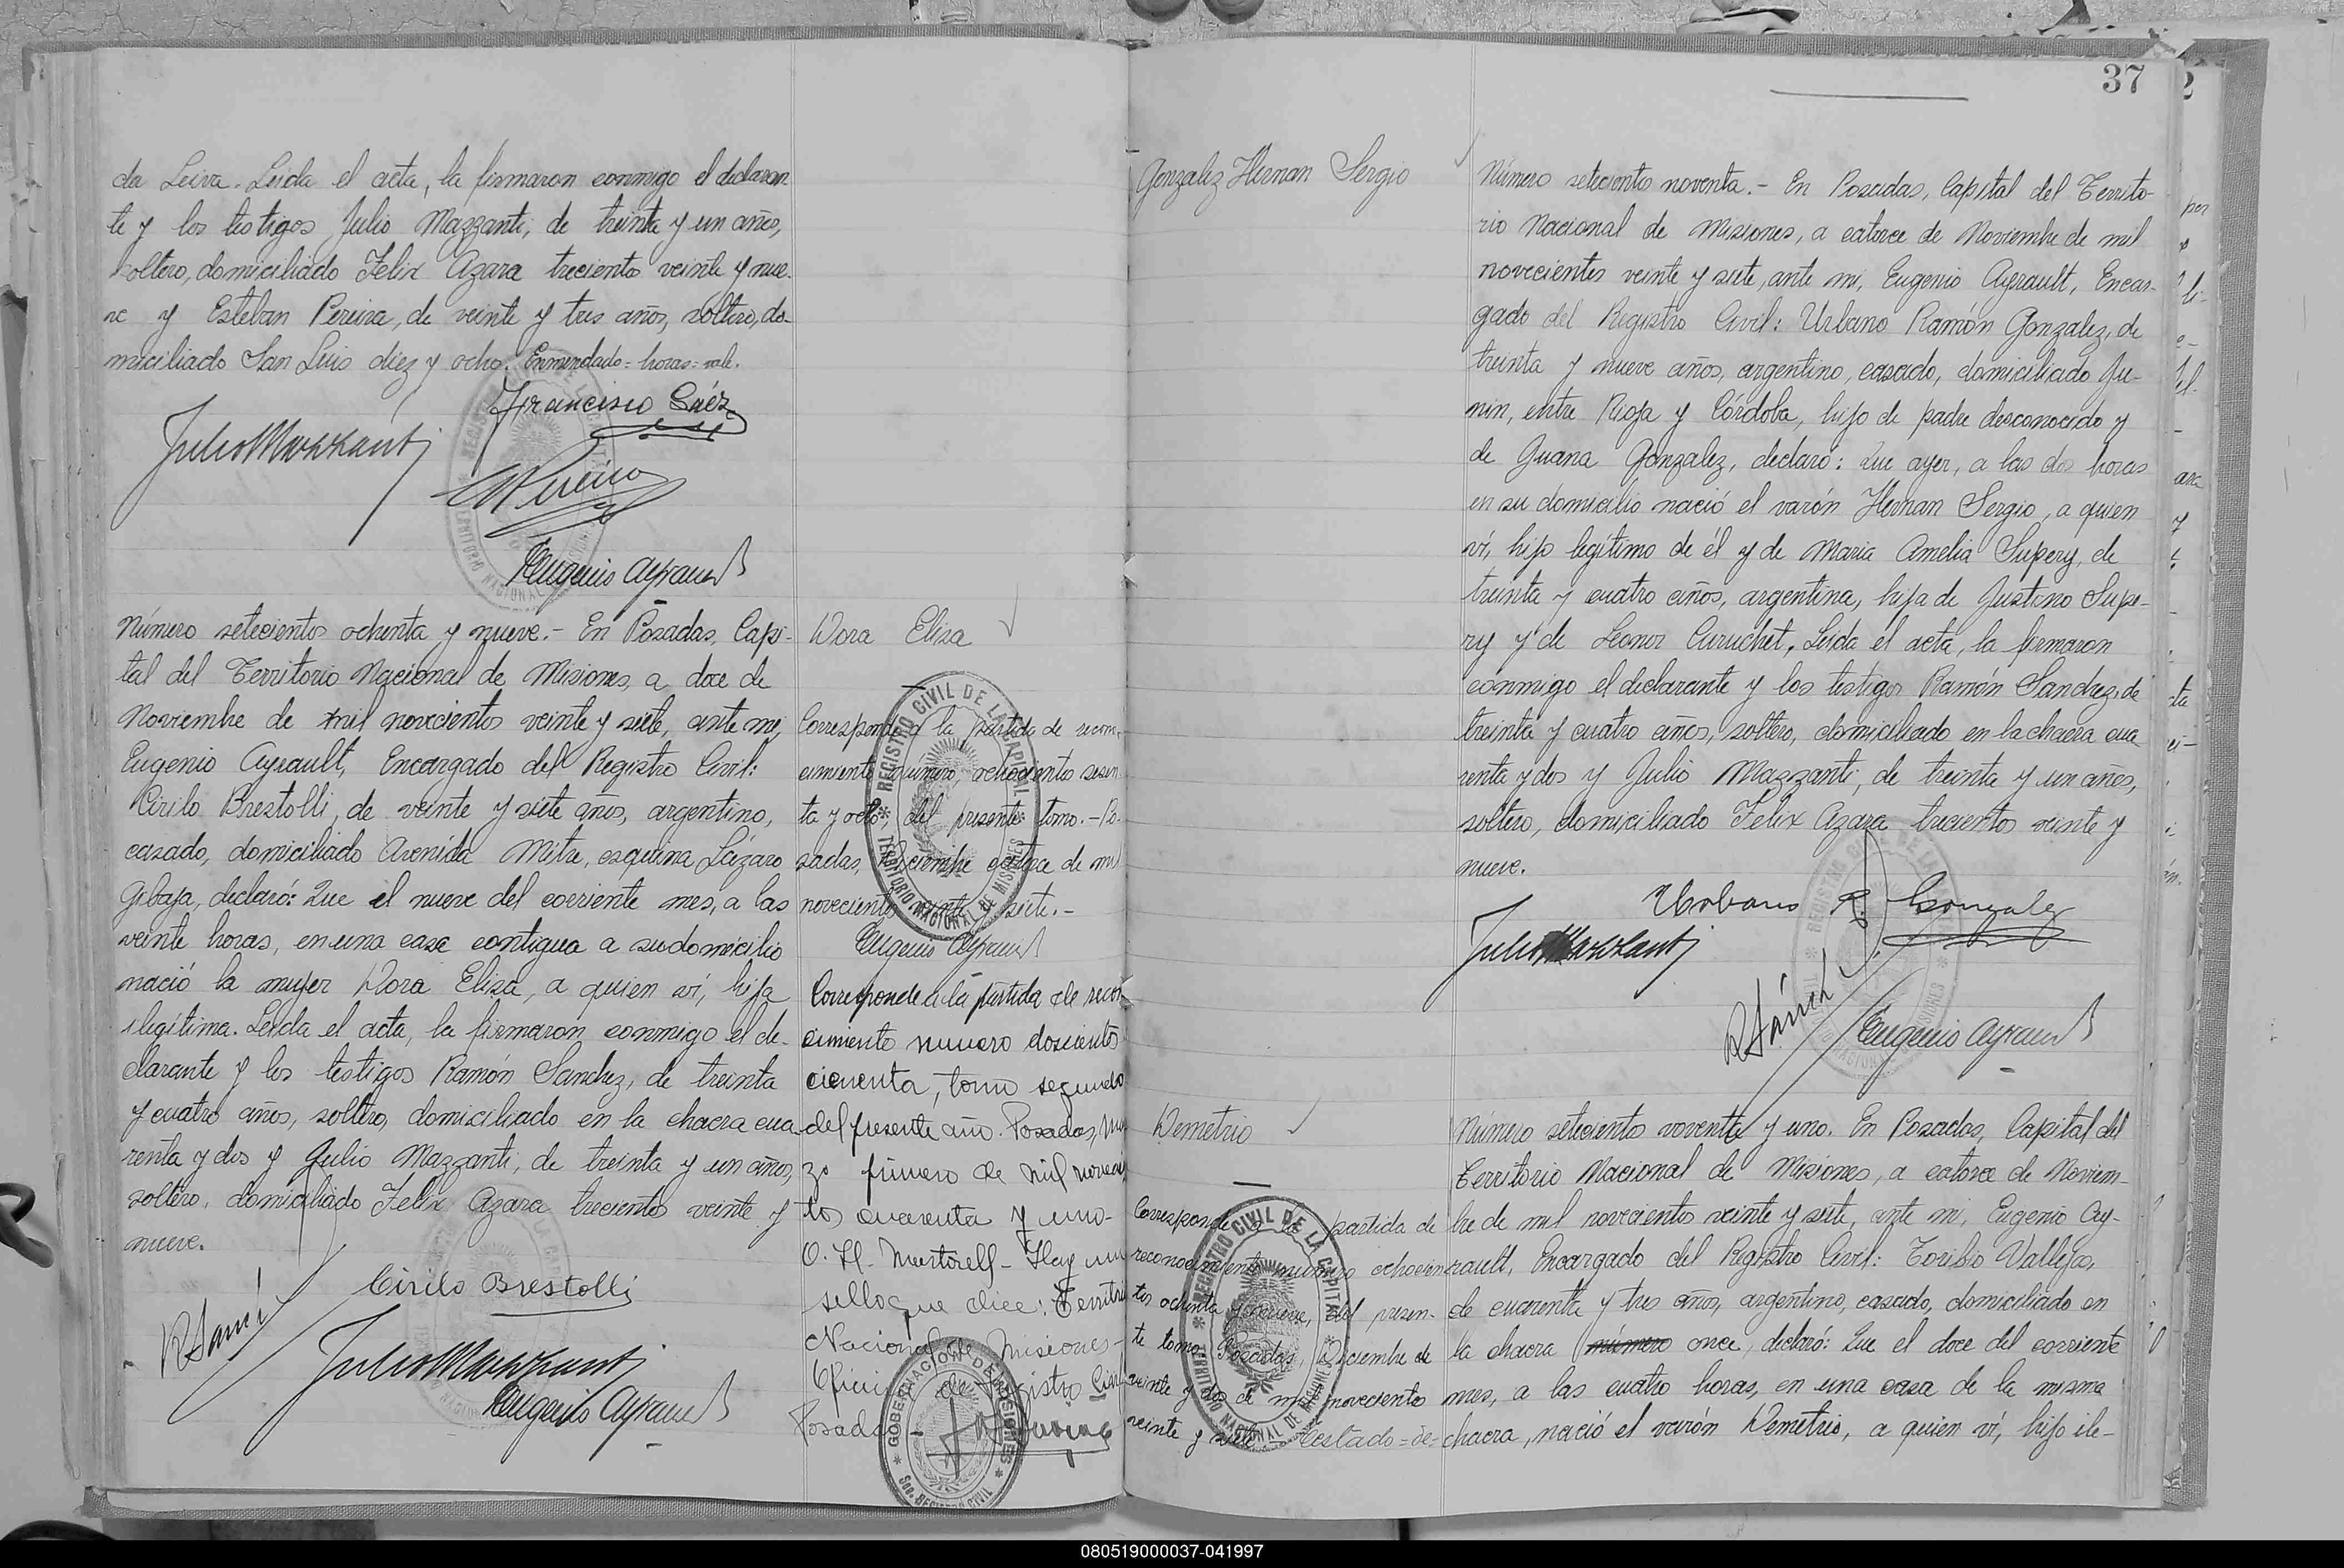 da Leiva. Leida el acta, la firmaron conmigo el declaran
te y los testigos Julio Mazzanti, de treinta y un años,
soltero, domiciliado Felix Azara treciento veinte y nue-
ve y Esteban Pereira, de veinte y tres años, soltero, do-
miciliado San Luis diez y ocho. Enmendado = horas = vale.
Francisco Sáez
Julio Mazzanti
EPereira
Eugenio Ayrault
Número seteciento ochenta y nueve.- En Posadas, Capi-
tal del Territorio Nacional de Misiones, a doce de
Noviembre de mil novecientos veinte y siete, ante mi,
Eugenio Ayrault, Encargado del Registro Civil:
Cirilo Brestolli, de veinte y siete años, argentino,
casado, domiciliado Avenida Mitre, esquina Lázaro
Gibaja, declaró: Que el nueve del corriente mes, a las
veinte horas, en una casa contigua a su domicilio
nació la mujer Dora Elisa, a quien vi, hija
ilegítima. Leida el acta, la firmaron conmigo el de-
clarante y los testigos Ramón Sanchez, de treinta
y cuatro años, soltero, domiciliado en la chacra cua-
renta y dos y Julio Mazzanti, de treinta y un años,
soltero, domiciliado Felix Azara treciento veinte y
nueve.
Cirilo Brestolli
Julio Mazzanti
Eugenio Ayrault
Dora Elisa
Corresponde a la partida de recono-
cimiento número, ochociento sesen-
ta y ocho, del presente tomo.- Po-
sadas, Diciembre catorce de mil
novecientos veinte y siete.-
Eugenio Ayrault
Corresponde a la partida de recon
cimiento numero doscientos
cicuenta, tomo segundo
del presente año. Posadas, Mar
zo primero de mil novecien
tos cuarenta y uno-
O. H. Martorell- Hay un
sello que dice: Territorio
Nacional de Misiones-
Oficina de Registro Civil
Posadas-
REGISTRO CIVIL DE LA CAPITAL
TERRITORIO NACIONAL DE MISIONES
GOBERNACION DE MISIONES
SEC. REGISTRO CIVIL
37
Gonzalez Hernan Sergio
Número seteciento noventa.- En Posadas, Capital del Territo-
rio Nacional de Misiones, a catorce de Noviembre de mil
novecientos veinte y siete, ante mi, Eugenio Ayrault, Encar-
gado del Registro Civil: Urbano Ramón Gonzalez, de
treinta y nueve años, argentino, casado, domiciliado Ju-
nin, entre Rioja y Córdoba, hijo de padre desconocido y
de Juana Gonzalez, declaró: Que ayer, a las dos horas
en su domicilio nació el varón Hernan Sergio, a quien
vi, hijo legítimo de él y de Maria Amelia Supery, de
treinta y cuatro años, argentina, hija de Justino Supe-
ry y de Leonor Curuchet. Leida el acta, la firmaron
conmigo el declarante y los testigos Ramón Sanchez, de
treinta y cuatro años, soltero, domiciliado en la chacra cua
renta y dos y Julio Mazzanti, de treinta y un años,
soltero, domiciliado Felix Azara treciento veinte y
nueve.
Urbano R. Gonzalez
Julio Mazzanti
RSánch
Eugenio Ayrault
Demetrio
Corresponde a la partida de
reconocimiento número ochocien
tos ochenta y nueve, del presen-
te tomo. Posadas, Diciembre de
veinte y dos de mil novecientos
veinte y siete Testado = de =
Número seteciento noventa y uno. En Posadas, Capital del
Territorio Nacional de Misiones, a catorce de Noviem-
bre de mil novecientos veinte y siete, ante mi, Eugenio Ay-
rault, Encargado del Registro Civil: Toribio Vallejos,
de cuarenta y tres años, argentino, casado, domiciliado en
la chacra número once, declaró: Que el doce del corriente
mes, a las cuatro horas, en una casa de la misma
chacra, nació el varón Demetrio, a quien vi, hijo ile-
REGISTRO CIVIL DE LA CAPITAL
TERRITORIO NACIONAL DE MISIONES
080519000037-041997